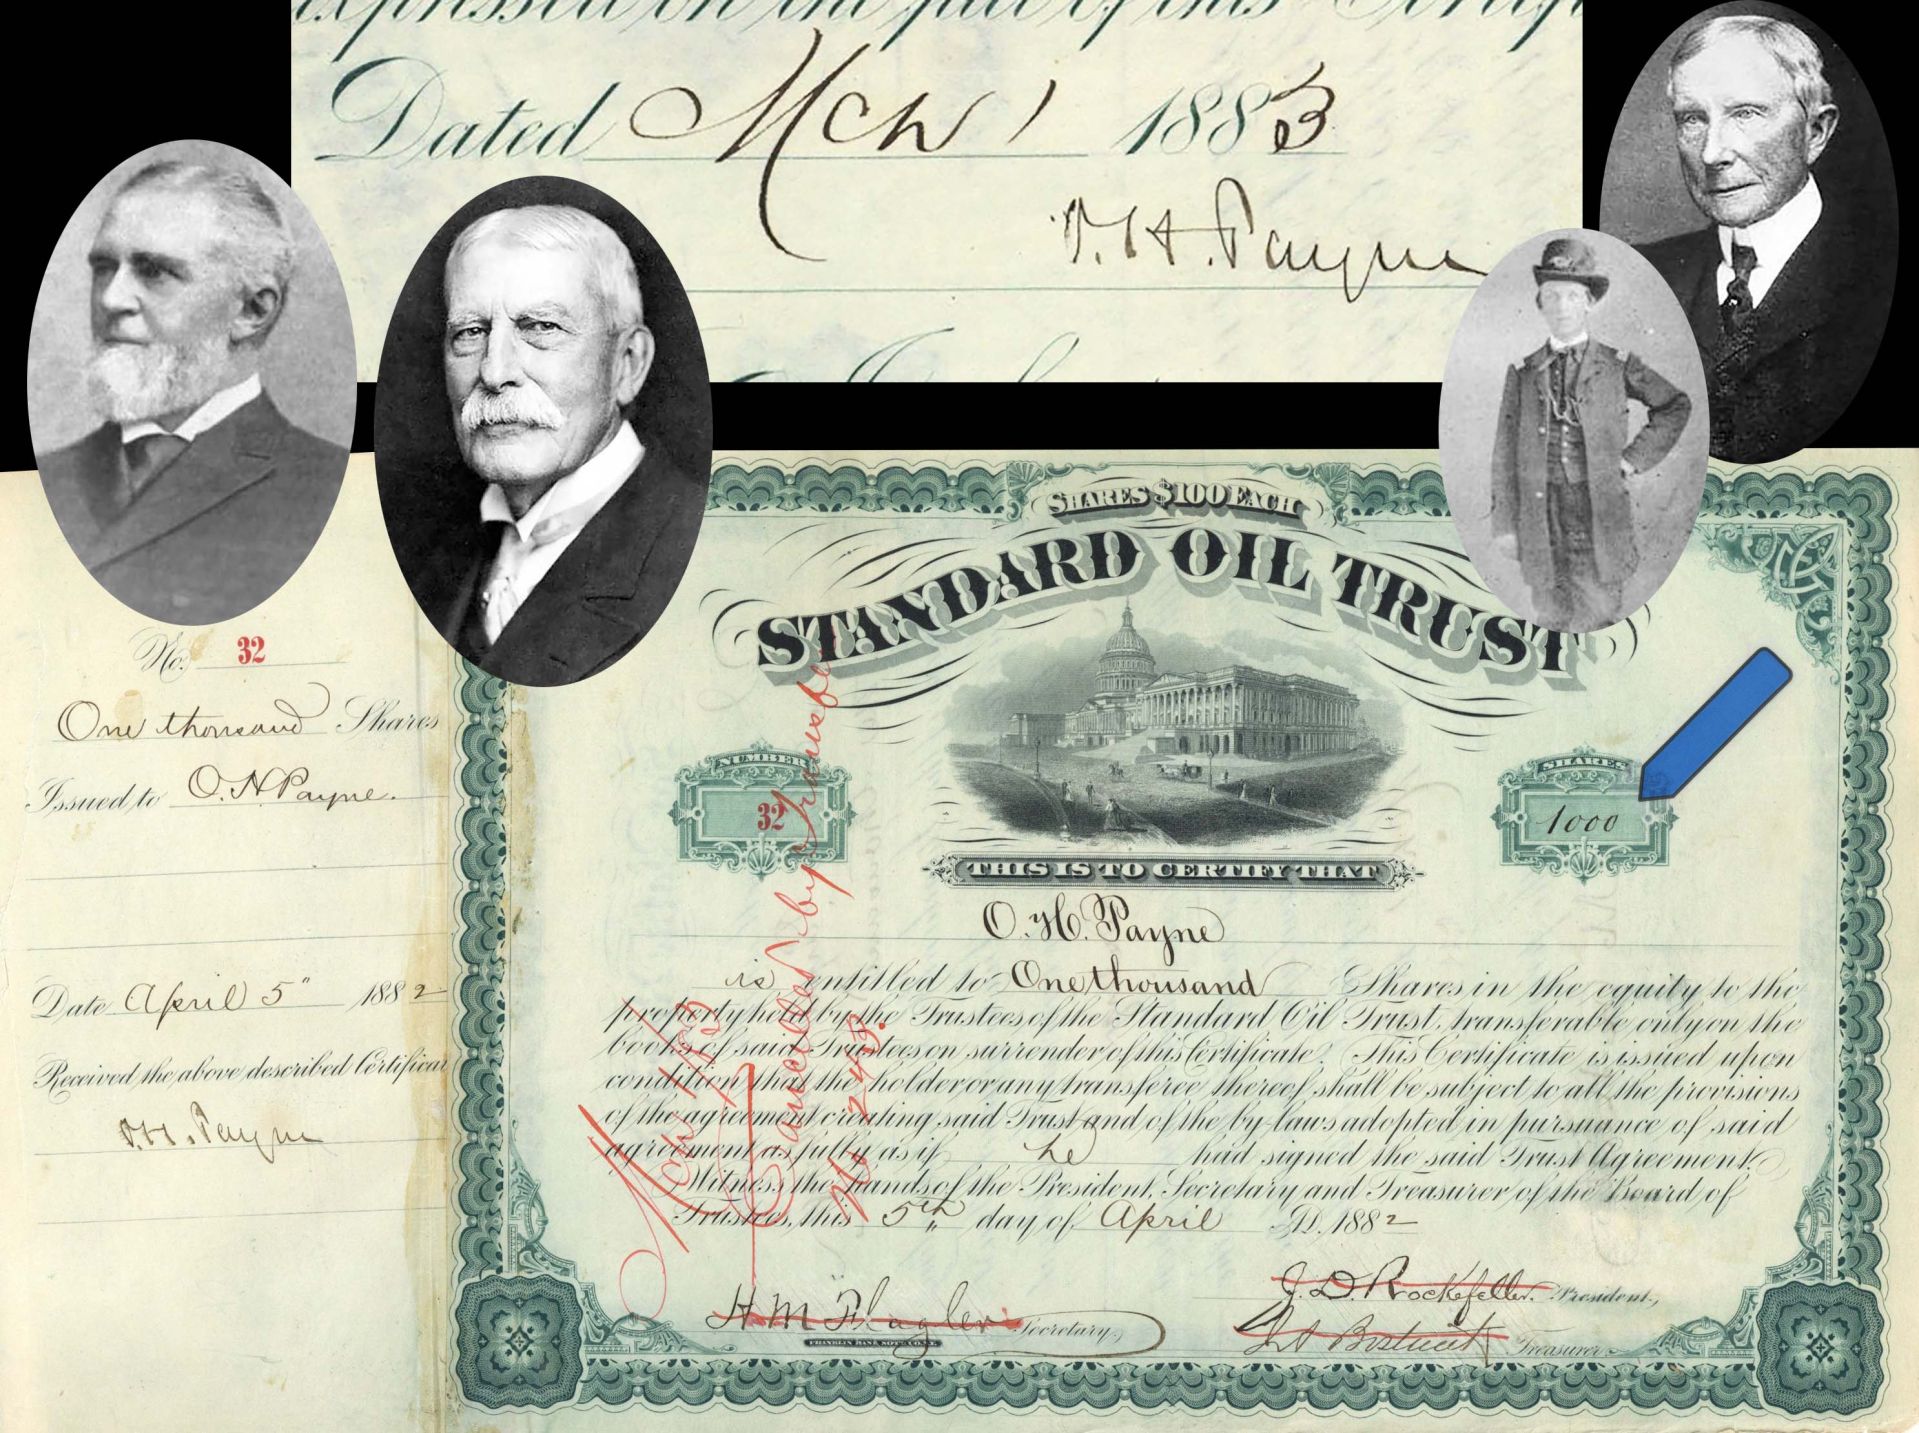 expressed on the face of this Certif
Dated Mch 1 1883
O.H. Payne
No. 32
One thousand Shares
Issued to O. H. Payne.
Date April 5" 1882
Received the above described Certificat
O.H. Payne
SHARES $100 EACH
STANDARD OIL TRUST
NUMBER
32
SHARES
1000
THIS IS TO CERTIFY THAT
O. H. Payne
is entitled to One thousand Shares in the equity to the
property held by the Trustees of the Standard Oil Trust, transferable only on the
books of said Trustees on surrender of this Certificate. This Certificate is issued upon
condition that the holder or any transferee thereof shall be subject to all the provisions
of the agreement creating said Trust and of the by-laws adopted in pursuance of said
agreement as fully as if he had signed the said Trust Agreement.
Witness the hands of the President, Secretary and Treasurer of the Board of
Trustees, this 5th day of April A.D. 1882
Cancelled by transfer
Mch 1/83
J. D. Rockefeller. President,
H M Flagler Secretary,
Treasurer.
FRANKLIN BANK NOTE CO. N.Y.